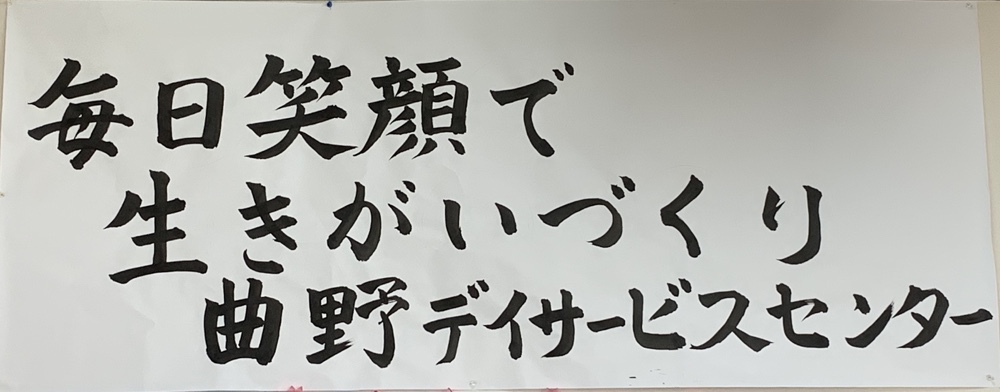 毎日笑顔で
生きがいづくり
曲野デイサービスセンター